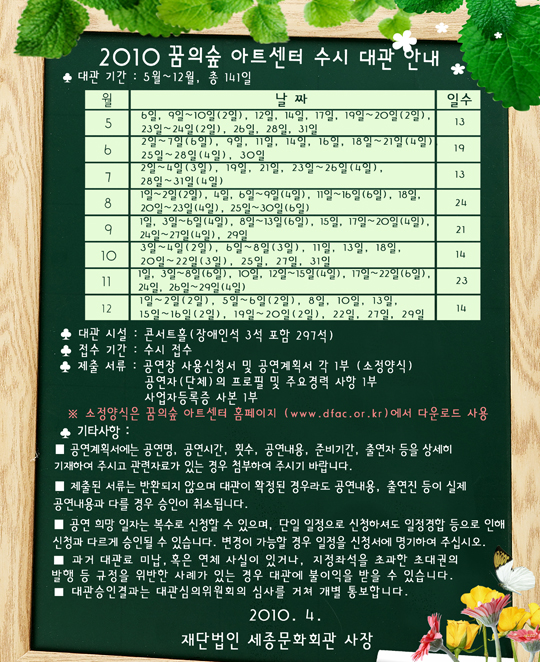 2010 꿈의숲 아트센터 수시 대관 안내
♣ 대관 기간 : 5월~12월, 총 141일
월 날 짜 일수
5 6일, 9일~10일(2일), 12일, 14일, 17일, 19일~20일(2일), 13
23일~24일(2일), 26일, 28일, 31일
6 2일~7일(6일), 9일, 11일, 14일, 16일, 18일~21일(4일) 19
25일~28일(4일), 30일
7 2일~4일(3일), 19일, 21일, 23일~26일(4일), 13
28일~31일(4일)
8 1일~2일(2일), 4일, 6일~9일(4일), 11일~16일(6일), 18일, 24
20일~23일(4일), 25일~30일(6일)
9 1일, 3일~6일(4일), 8일~13일(6일), 15일, 17일~20일(4일), 21
24일~27일(4일), 29일
10 3일~4일(2일), 6일~8일(3일), 11일, 13일, 18일, 14
20일~22일(3일), 25일, 27일, 31일
11 1일, 3일~8일(6일), 10일, 12일~15일(4일), 17일~22일(6일), 23
24일, 26일~29일(4일)
12 1일~2일(2일), 5일~6일(2일), 8일, 10일, 13일, 14
15일~16일(2일), 19일~20일(2일), 22일, 27일, 29일
♣ 대관 시설 : 콘서트홀(장애인석 3석 포함 297석)
♣ 접수 기간 : 수시 접수
♣ 제출 서류 : 공연장 사용신청서 및 공연계획서 각 1부 (소정양식)
공연자(단체)의 프로필 및 주요경력 사항 1부
사업자등록증 사본 1부
※ 소정양식은 꿈의숲 아트센터 홈페이지 (www.dfac.or.kr)에서 다운로드 사용
♣ 기타사항 :
■ 공연계획서에는 공연명, 공연시간, 횟수, 공연내용, 준비기간, 출연자 등을 상세히
기재하여 주시고 관련자료가 있는 경우 첨부하여 주시기 바랍니다.
■ 제출된 서류는 반환되지 않으며 대관이 확정된 경우라도 공연내용, 출연진 등이 실제
공연내용과 다를 경우 승인이 취소됩니다.
■ 공연 희망 일자는 복수로 신청할 수 있으며, 단일 일정으로 신청하셔도 일정경합 등으로 인해
신청과 다르게 승인될 수 있습니다. 변경이 가능할 경우 일정을 신청서에 명기하여 주십시오.
■ 과거 대관료 미납,혹은 연체 사실이 있거나, 지정좌석을 초과한 초대권의
발행 등 규정을 위반한 사례가 있는 경우 대관에 불이익을 받을 수 있습니다.
■ 대관승인결과는 대관심의위원회의 심사를 거쳐 개별 통보합니다.
2010. 4.
재단법인 세종문화회관 사장